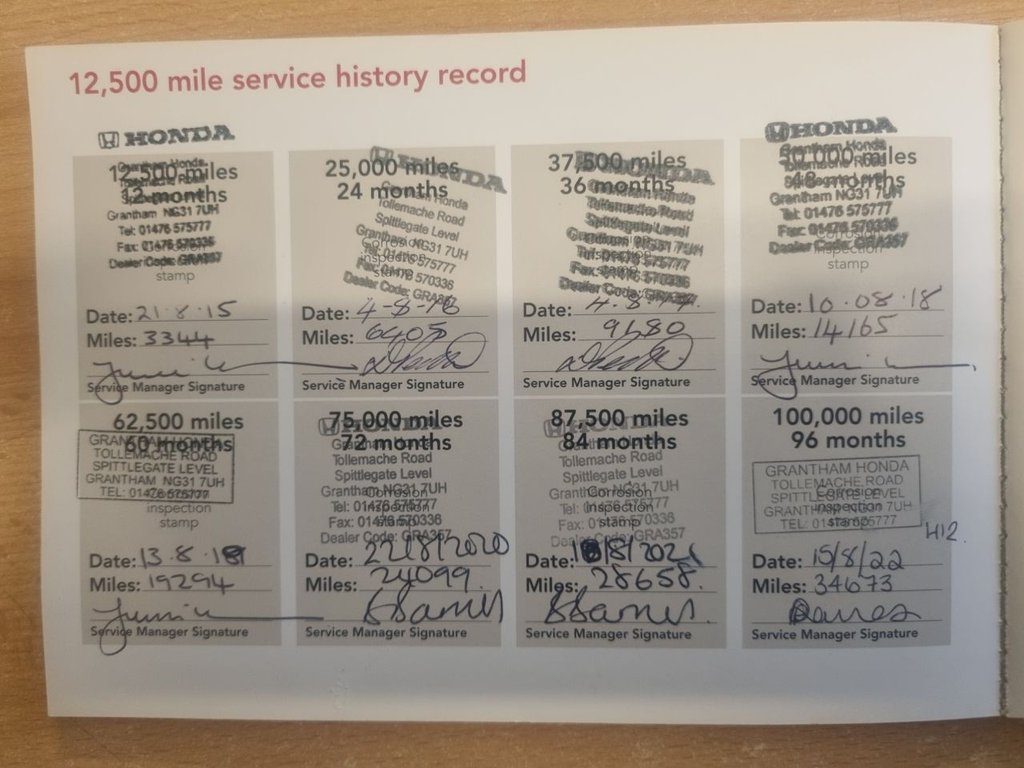 12,500 mile service history record
HONDA
Grantham Honda
12,500 miles
12 months
Tollemache Road
Spittlegate Level
Grantham NG31 7UH
Tel: 01476 575777
Fax: 01476 570336
Dealer Code: GRA357
stamp
Date: 21.8.15
Miles: 3344
Service Manager Signature
HONDA
25,000 miles
24 months
Grantham Honda
Tollemache Road
Spittlegate Level
Grantham NG31 7UH
Tel: 01476 575777
Fax: 01476 570336
Dealer Code: GRA357
Corrosion
inspection
stamp
Date: 4-8-16
Miles: 6405
Service Manager Signature
HONDA
37,500 miles
36 months
Grantham Honda
Tollemache Road
Spittlegate Level
Grantham NG31 7UH
Tel: 01476 575777
Fax: 01476 570336
Dealer Code: GRA357
Date: 4.8.17.
Miles: 9680
Service Manager Signature
HONDA
50,000 miles
48 months
Grantham Honda
Tollemache Road
Spittlegate Level
Grantham NG31 7UH
Tel: 01476 575777
Fax: 01476 570336
Dealer Code: GRA357
Corrosion
inspection
stamp
Date: 10.08.18
Miles: 14165
Service Manager Signature
62,500 miles
60 months
GRANTHAM HONDA
TOLLEMACHE ROAD
SPITTLEGATE LEVEL
GRANTHAM NG31 7UH
TEL: 01476 575777
inspection
stamp
Date: 13.8.19
Miles: 19294
Service Manager Signature
HONDA
75,000 miles
72 months
Grantham Honda
Tollemache Road
Spittlegate Level
Grantham NG31 7UH
Tel: 01476 575777
Fax: 01476 570336
Dealer Code: GRA357
Corrosion
inspection
stamp
Date: 22/8/2020
Miles: 24099.
Service Manager Signature
HONDA
87,500 miles
84 months
Grantham Honda
Tollemache Road
Spittlegate Level
Grantham NG31 7UH
Tel: 01476 575777
Fax: 01476 570336
Dealer Code: GRA357
Corrosion
inspection
stamp
Date: /8/2021
Miles: 28658.
Service Manager Signature
100,000 miles
96 months
GRANTHAM HONDA
TOLLEMACHE ROAD
SPITTLEGATE LEVEL
GRANTHAM NG31 7UH
TEL: 01476 575777
Corrosion
inspection
stamp
H12.
Date: 15/8/22
Miles: 34673
Service Manager Signature